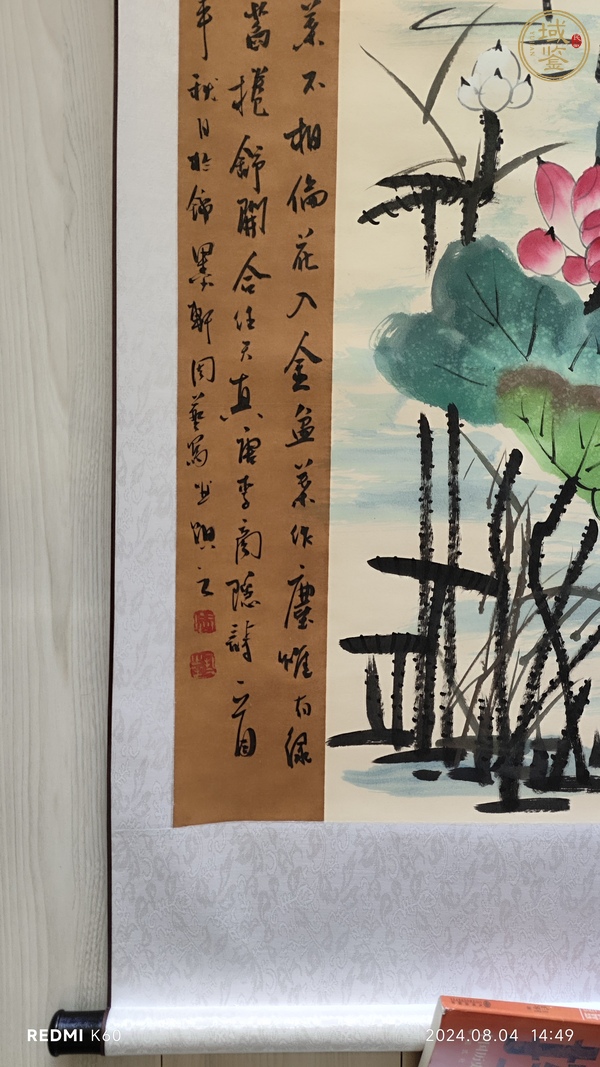 葉不相倫花入金盆葉作塵惟有綠
萏捲舒開合任天真唐李商隐詩一首
年秋月於錦墨軒周藝寫並題之
域鉴
REDMI K60
2024.08.04 14:49